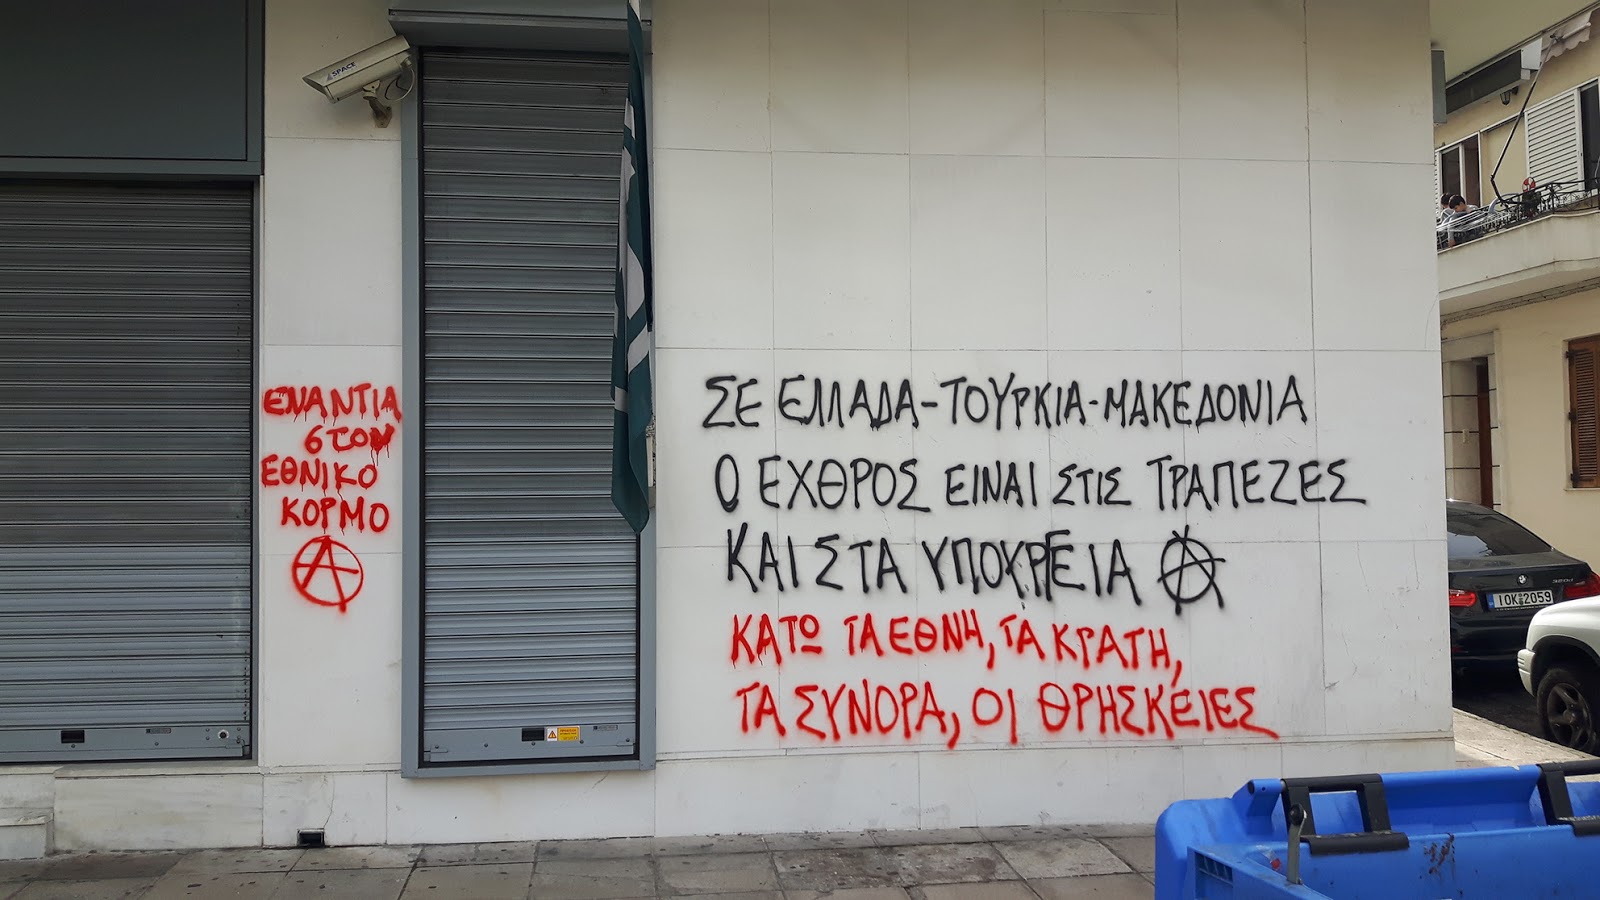 SPACE
ΕΝΑΝΤΙΑ
ΣΤΟΝ
ΕΘΝΙΚΟ
ΚΟΡΜΟ
ΣΕ ΕΛΛΑΔΑ-ΤΟΥΡΚΙΑ-ΜΑΚΕΔΟΝΙΑ
Ο ΕΧΘΡΟΣ ΕΙΝΑΙ ΣΤΙΣ ΤΡΑΠΕΖΕΣ
ΚΑΙ ΣΤΑ ΥΠΟΥΡΓΕΙΑ
ΚΑΤΩ ΤΑ ΕΘΝΗ, ΤΑ ΚΡΑΤΗ,
ΤΑ ΣΥΝΟΡΑ, ΟΙ ΘΡΗΣΚΕΙΕΣ
320d
ΙΟΚ 2059